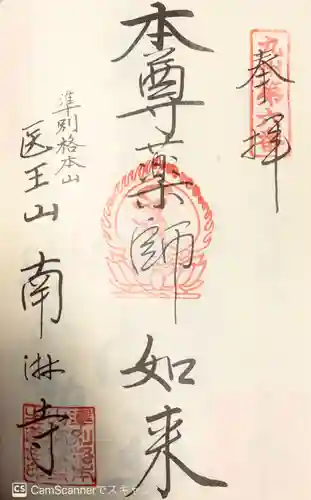 奉拝
本尊薬師如来
準別格本山
医王山南淋寺
CS CamScannerでスキャ